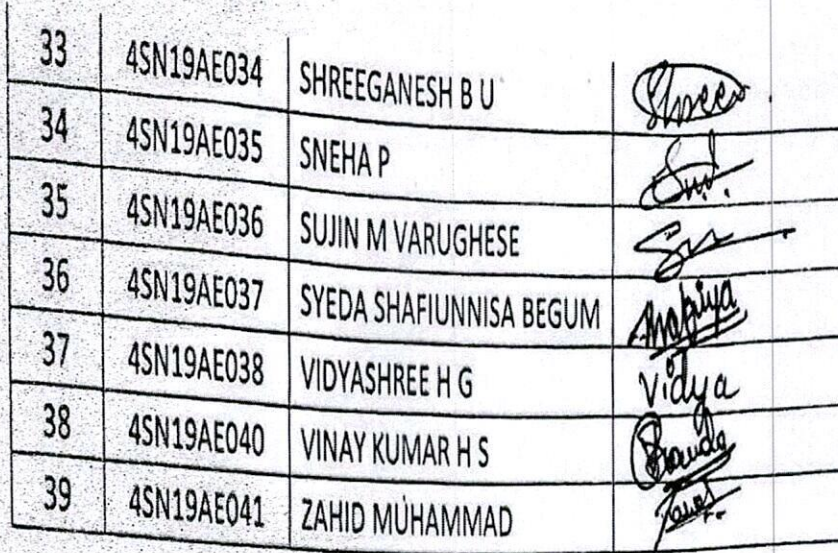 33 4SN19AE034 SHREEGANESH B U Shree
34 4SN19AE035 SNEHA P
35 4SN19AE036 SUJIN M VARUGHESE
36 4SN19AE037 SYEDA SHAFIUNNISA BEGUM
37 4SN19AE038 VIDYASHREE H G Vidya
38 4SN19AE040 VINAY KUMAR H S
39 4SN19AE041 ZAHID MUHAMMAD